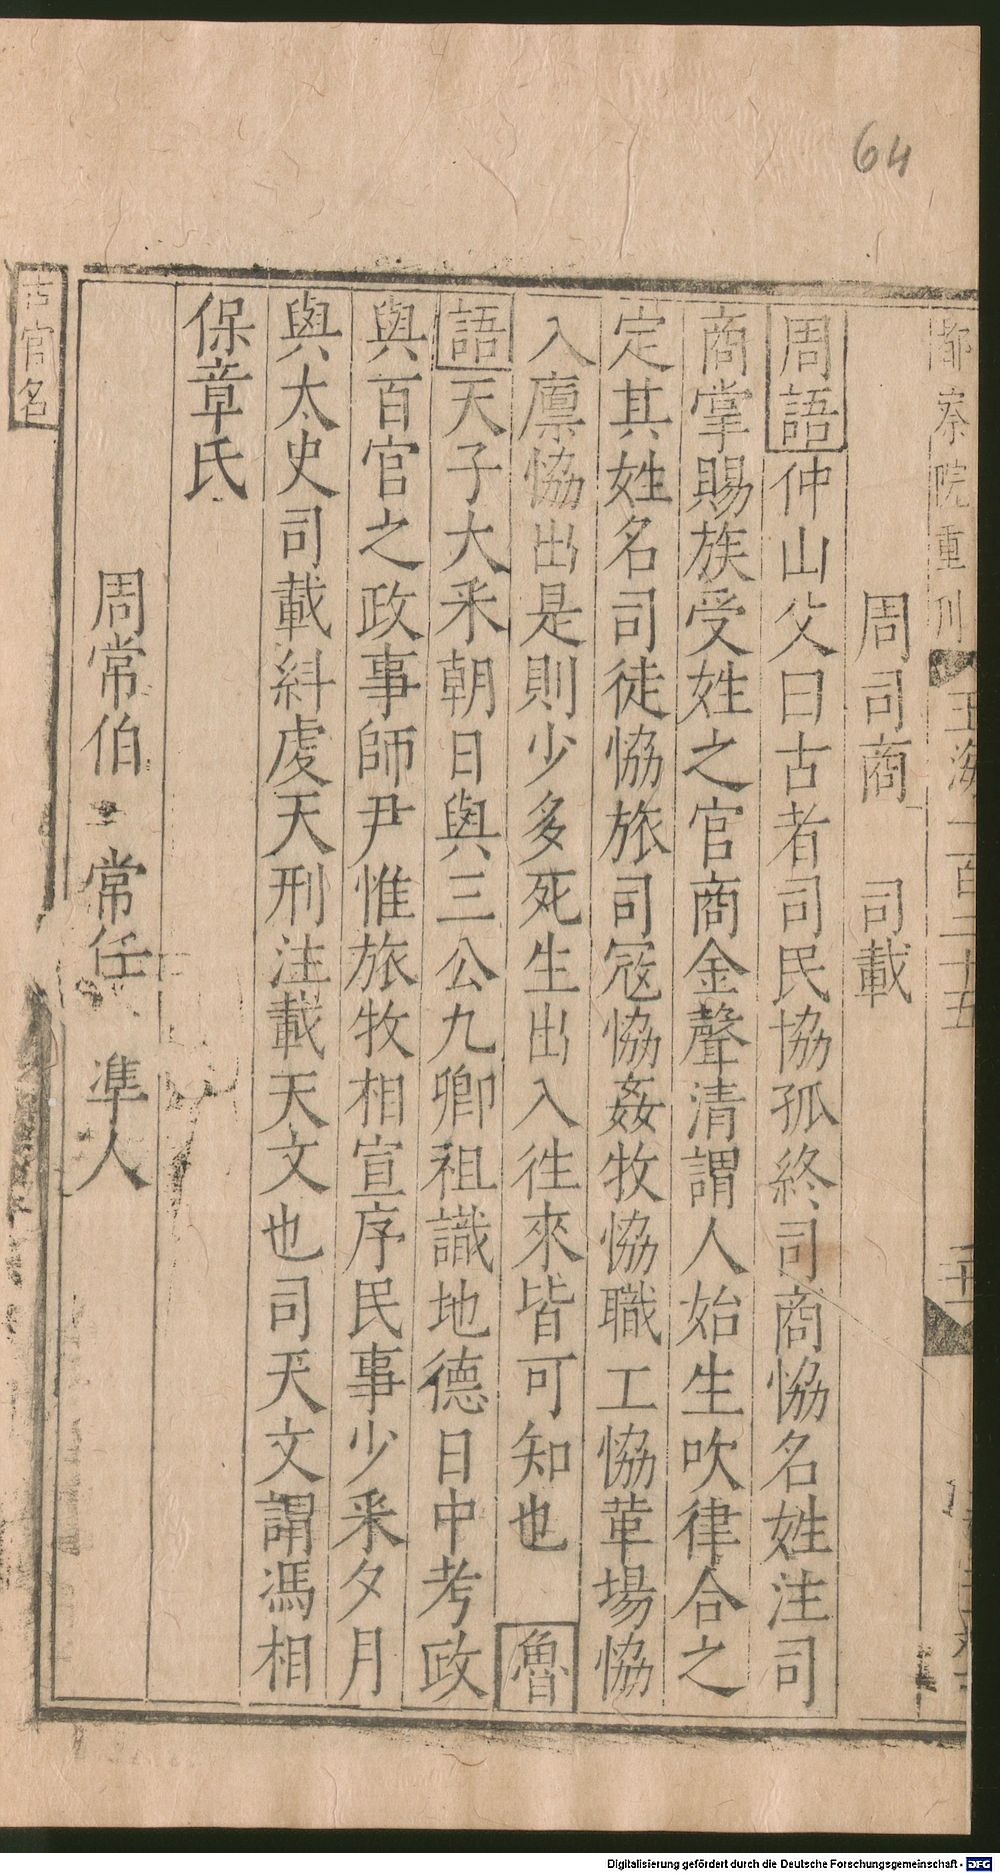 64
都察院重刊
玉海一百二十五
周司商　司載
周語仲山父曰古者司民協孤終司商協名姓注司
商掌賜族受姓之官商金聲清謂人始生吹律合之
定其姓名司徒協旅司寇協姦牧協職工協革場協
入廩協出是則少多死生出入徃來皆可知也　魯
語天子大采朝日與三公九卿祖識地德日中考政
與百官之政事師尹惟旅牧相宣序民事少采夕月
與太史司載糾虔天刑注載天文也司天文謂馮相
保章氏
周常伯　常任　凖人
古官名
Digitalisierung gefördert durch die Deutsche Forschungsgemeinschaft - DFG